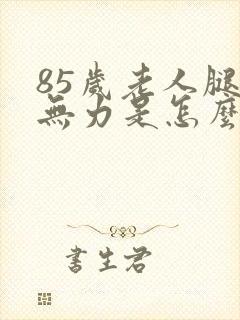 85歲老人腿
無力是怎麼
書生君